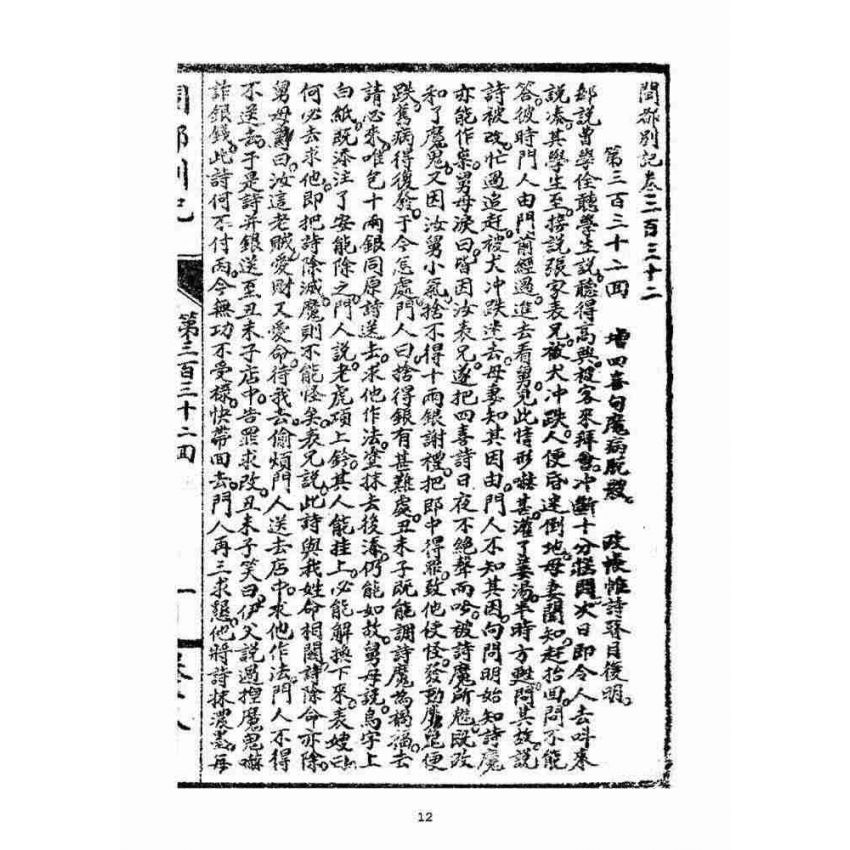 閩都別記卷三百三十二
第三百三十二回 增四喜句魔病脫體 改帳帷詩瞽目復明
却說曹學佺聽學生說聽得高興被客來拜會冲斷十分怪悶次日即令人去呌來
說凑其學生至接說張家表兄被犬冲跌人便昏迷倒地母妻聞知赶抬回問不能
答彼時門人由門前經過進去看舅見此情形嗟甚灌了姜湯半時方甦問其故說
詩被改忙過追赶被犬冲跌迷去母妻知其因由門人不知其因向問明始知詩魔
亦能作祟舅母淚曰皆因汝表兄遂把四喜詩日夜不絕聲而吟被詩魔所魅既改
和了魔鬼又因汝舅小氣捨不得十兩銀謝禮把郎中得罪致他使怪發動魔鬼便
跌舊病得復發于今怎處門人曰捨得銀有甚難處丑未子既能調詩魔為禍福去
請必來唯包十兩銀同原詩送去求他作法塗抹去後凑仍能如故舅母說烏字上
白紙既添注了安能除之門人說老虎項上鈴其人能挂上必能解換下來表嫂曰
何必去求他即把詩除滅魔則不能怪矣表兄說此詩與我姓命相關詩除命亦除
舅母罵曰汝這老賊愛財又愛命待我去偷煩門人送去店中求他作法門人不得
不送去于是詩并銀送至丑未子店中告罪求改丑未子笑曰伊父說過捏魔鬼嚇
詐銀錢此詩何不付丙今無功不受祿快帶回去門人再三求懇他將詩抹濃墨每
閩都別記
第三百三十二回